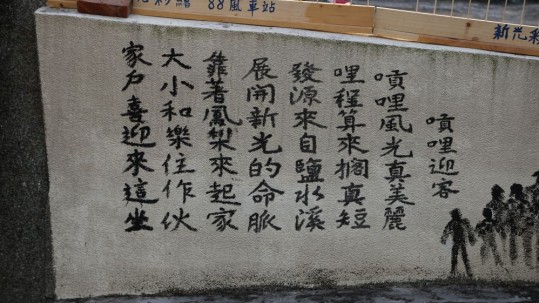 彩繪
88風車站
新光彩
嗊哩迎客
嗊哩風光真美麗
哩程算來擱真短
發源來自鹽水溪
展開新光的命脈
靠著鳳梨來起家
大小和樂住作伙
家戶喜迎來這坐